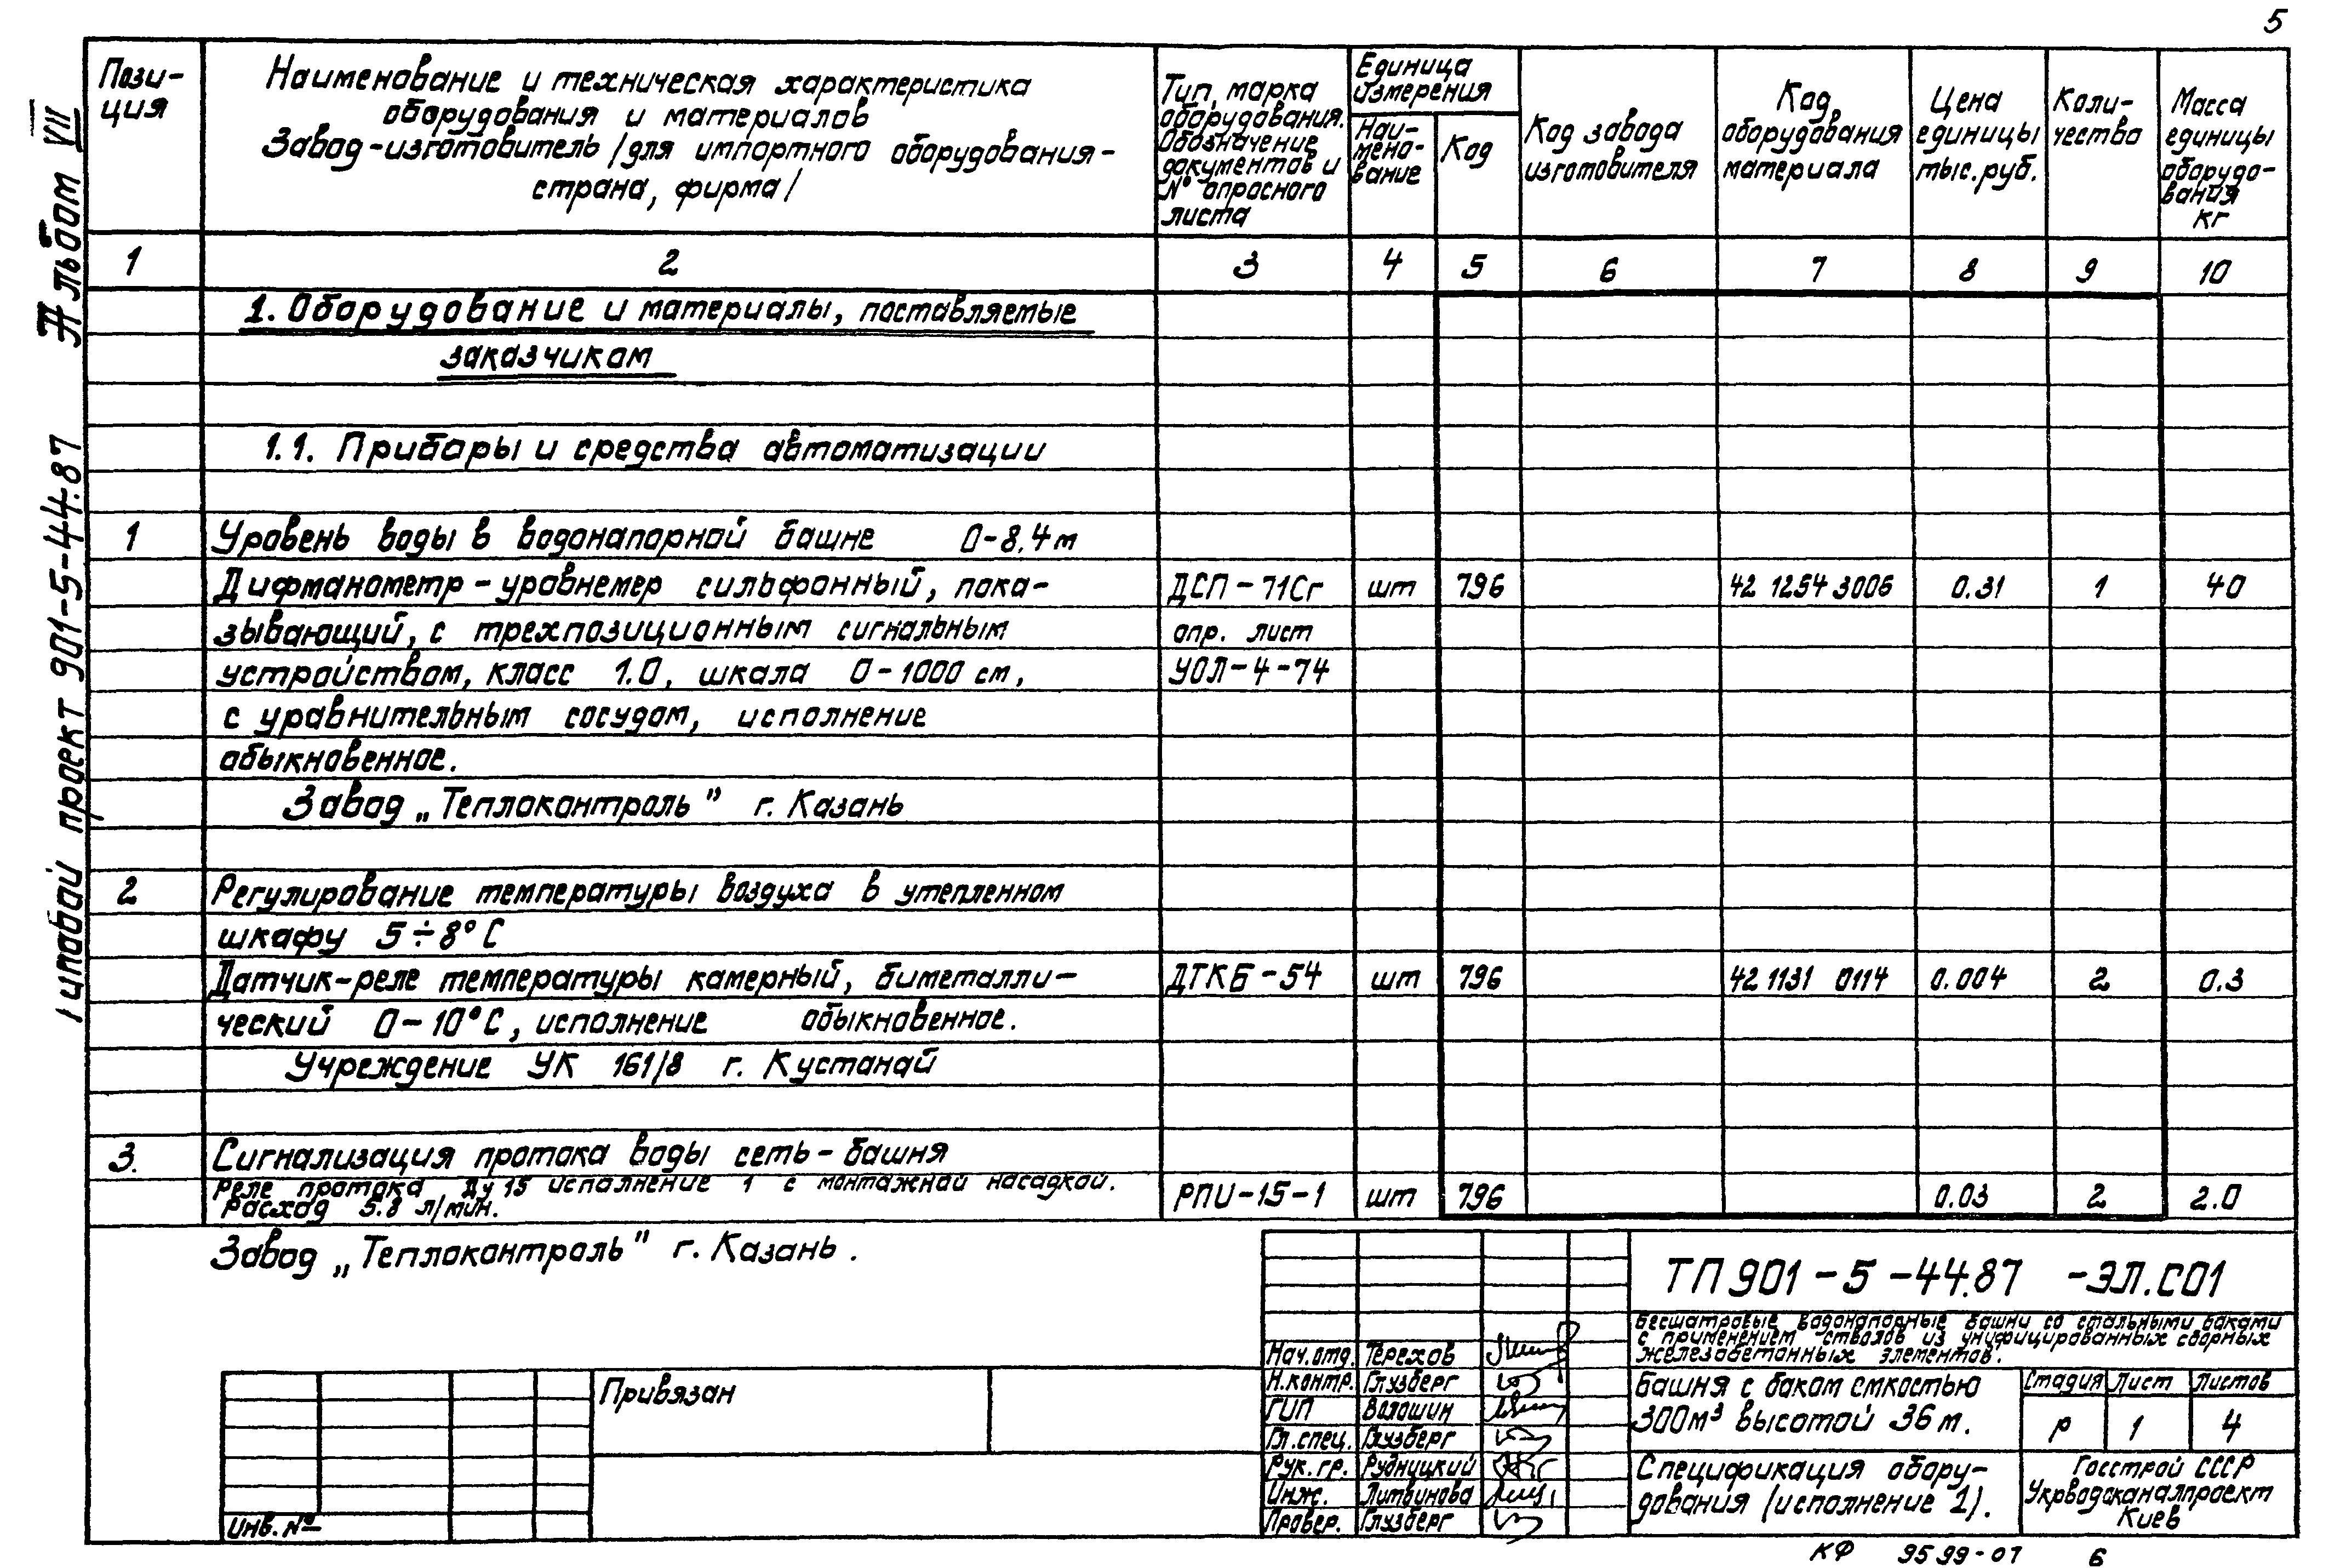 5
Альбом VII
Типовой проект 901-5-44.87
Пози-
ция
Наименование и техническая характеристика
оборудования и материалов
Завод-изготовитель /для импортного оборудования-
страна, фирма/
Тип, марка
оборудования.
Обозначение
документов и
№ опросного
листа
Единица
измерения
Наи-
мено-
вание
Код
Код завода
изготовителя
Код
оборудования
материала
Цена
единицы
тыс.руб.
Коли-
чество
Масса
единицы
оборудо-
вания
кг
1 2 3 4 5 6 7 8 9 10
1. Оборудование и материалы, поставляемые
заказчиком
1.1. Приборы и средства автоматизации
1 Уровень воды в водонапорной башне 0-8.4м
Дифманометр-уровнемер сильфонный, пока- ДСП-71Сг шт 796 42 1254 3006 0.31 1 40
зывающий, с трехпозиционным сигнальным опр. лист
устройством, класс 1.0, шкала 0-1000 см, УОЛ-4-74
с уравнительным сосудом, исполнение
обыкновенное.
Завод „Теплоконтроль" г. Казань
2 Регулирование температуры воздуха в утепленном
шкафу 5÷8°С
Датчик-реле температуры камерный, биметалли- ДТКБ-54 шт 796 42 1131 0114 0.004 2 0.3
ческий 0-10°С, исполнение обыкновенное.
Учреждение УК 161/8 г. Кустанай
3. Сигнализация протока воды сеть-башня
Реле протока Ду 15 исполнение 1 с монтажной насадкой.
Расход 5.8 л/мин. РПИ-15-1 шт 796 0.03 2 2.0
Завод „Теплоконтроль" г. Казань.
ТП 901-5-44.87 -ЭЛ.СО1
Бесшатровые водонапорные башни со стальными баками
с применением стволов из унифицированных сборных
железобетонных элементов.
Нач.отд. Терехов
Н.контр. Глузберг
ГИП Волошин
Гл.спец. Глузберг
Рук.гр. Рудницкий
Инж. Литвинова
Провер. Глузберг
Башня с баком емкостью
300м³ высотой 36 м.
Стадия Лист Листов
Р 1 4
Спецификация обору-
дования (исполнение 1).
Госстрой СССР
Укрводоканалпроект
Киев
Привязан
Инв. №
КФ 9599-07 6